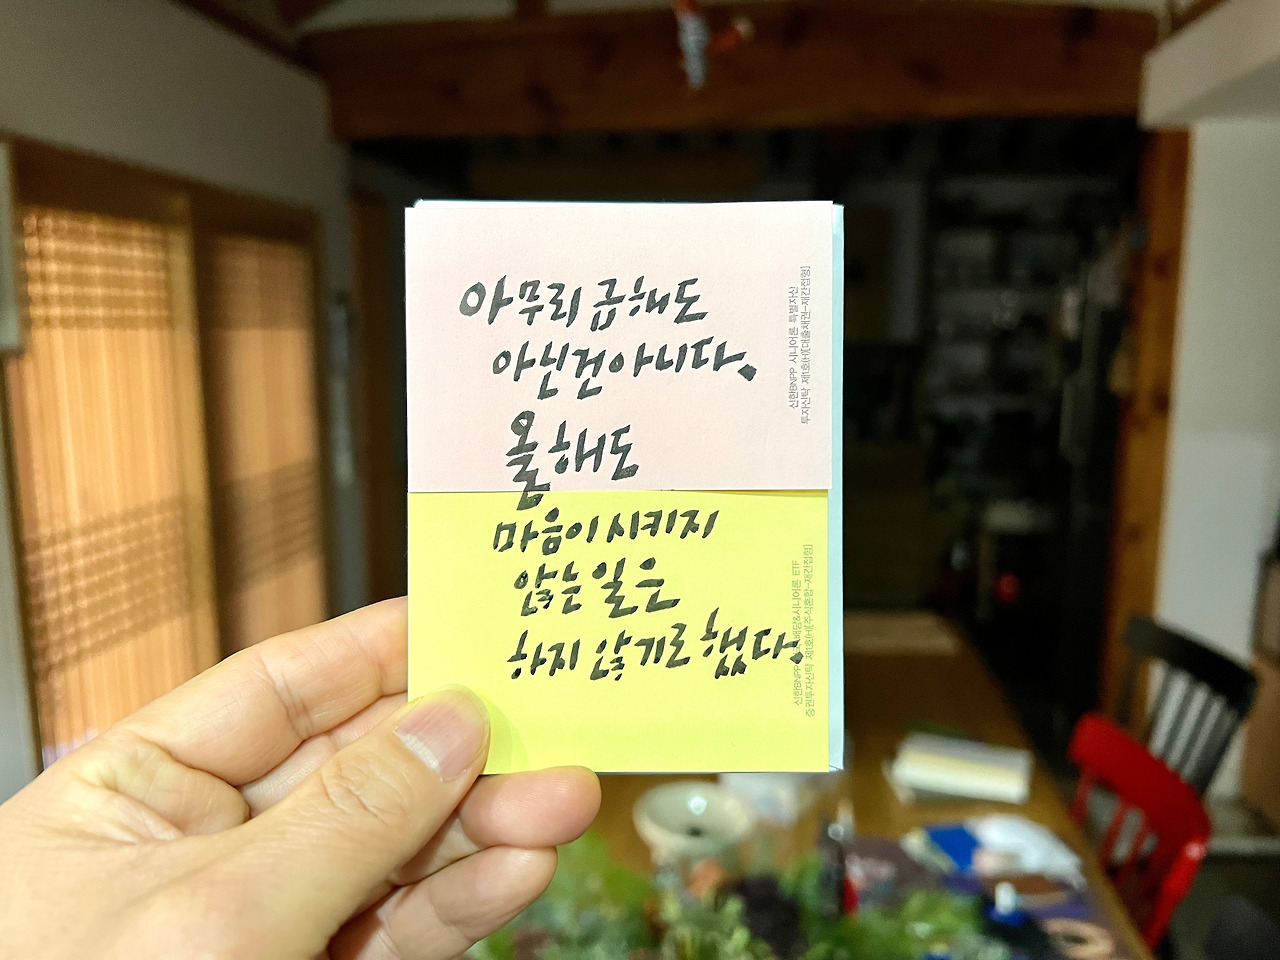 아무리 급해도
아닌건 아니다.
올해도
마음이 시키지
않는 일은
하지 않기로 했다.
신한BNPP 시니어론 특별자산
투자신탁 제1호(H)[대출채권-재간접형]
신한BNPP 배당&시니어론 ETF
증권투자신탁 제1호(H)[주식혼합-재간접형]